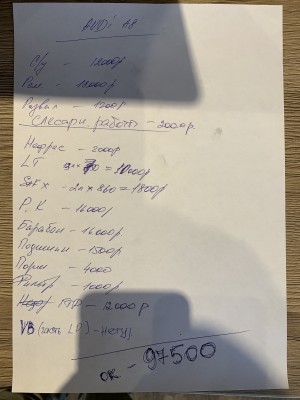 AUDI A8
С/у - 12000р
Рем - 14000р
Развал - 1500р
Слесарн. работы - 2000р.
Надрес - 2000р
LT = 10000р
- 2л × 860 = 1800р
Р.К - 16000р
Барабан - 16000р
- 1500р
Порш - 4000
Фильтр - 1000р
ГТР - 12000р
VB (часть LP) - нету)
ок - 97500